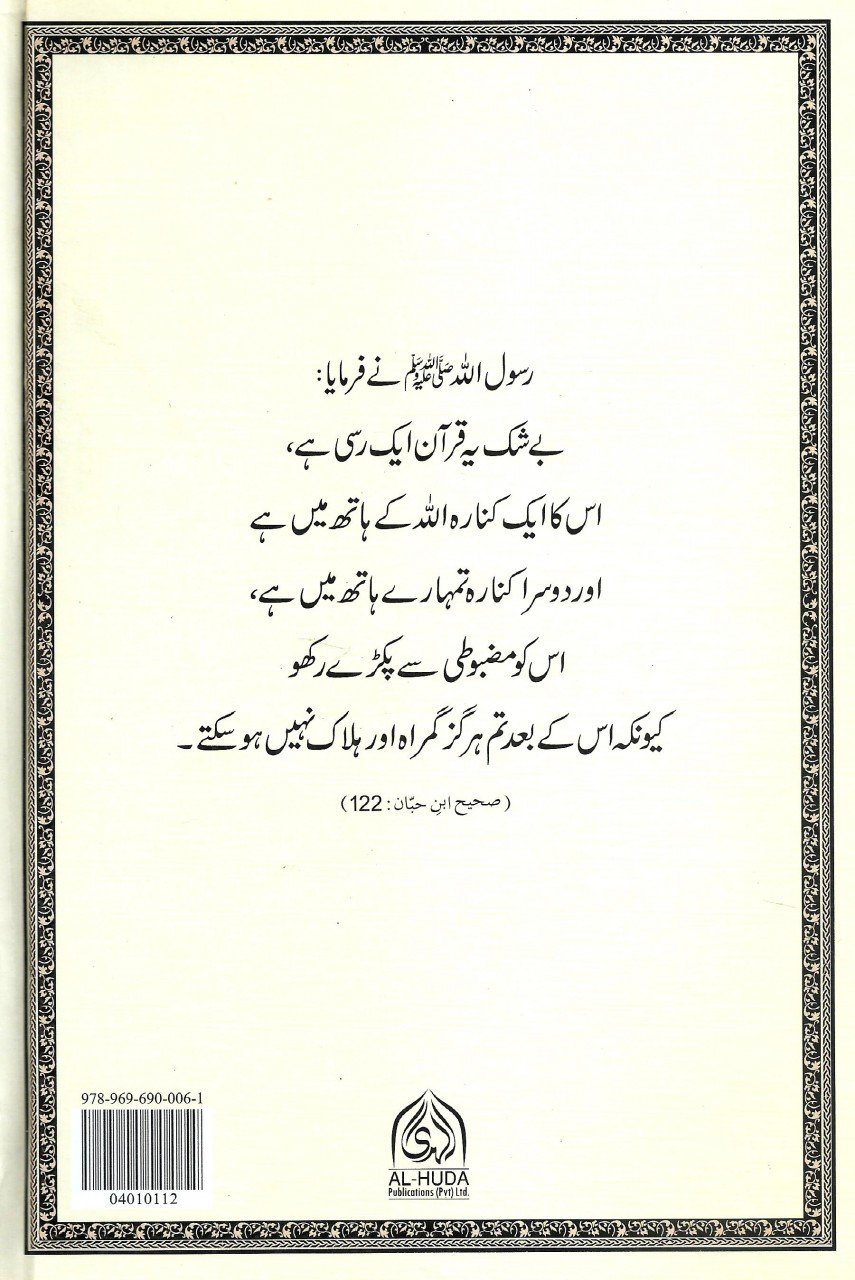 رسول اللہ ﷺ نے فرمایا:
بے شک یہ قرآن ایک رسی ہے،
اس کا ایک کنارہ اللہ کے ہاتھ میں ہے
اور دوسرا کنارہ تمہارے ہاتھ میں ہے،
اس کو مضبوطی سے پکڑے رکھو
کیونکہ اس کے بعد تم ہرگز گمراہ اور ہلاک نہیں ہو سکتے۔
(صحیح ابنِ حبّان: 122)
978-969-690-006-1
04010112
الهدى
AL-HUDA
Publications (Pvt) Ltd.